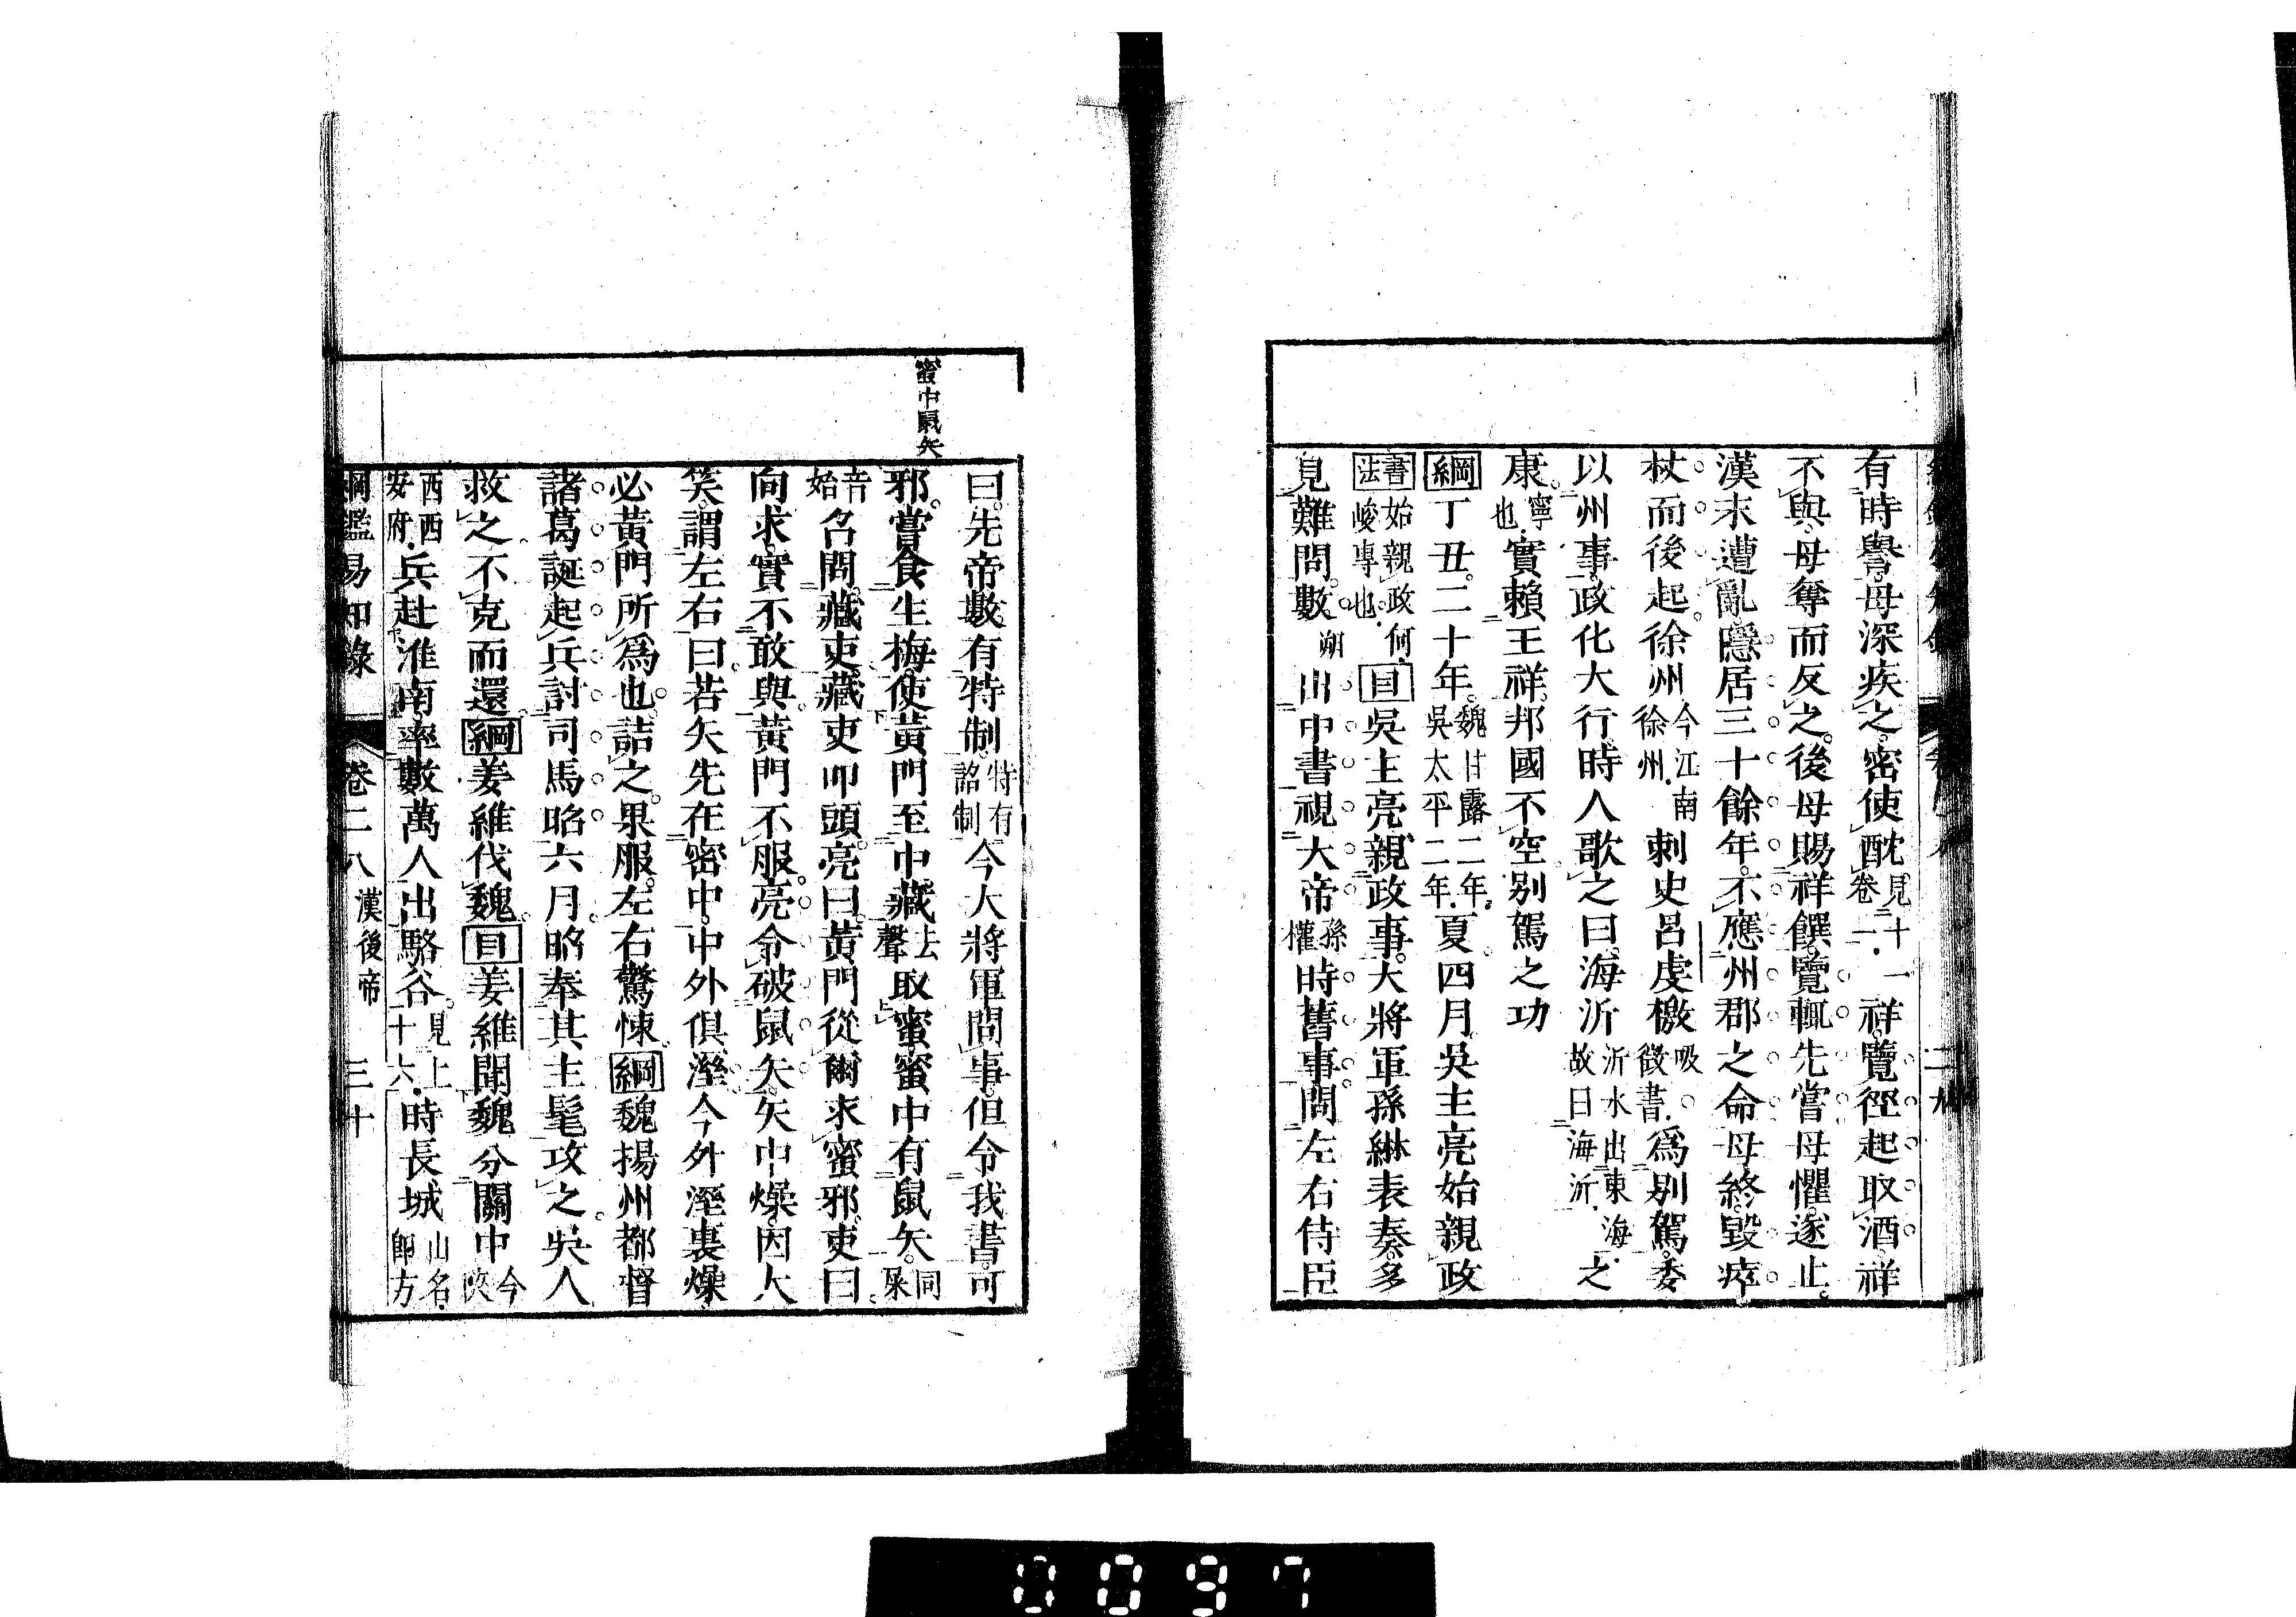 有時譽母深疾之密使酖見十一卷二祥覽徑起取酒祥
不與母奪而反之後母賜祥饌覽輒先嘗母懼遂止
漢末遭亂隱居三十餘年不應州郡之命母終毀瘁
杖而後起徐州今江南徐州刺史呂虔檄吸徵書為別駕委
以州事政化大行時人歌之曰海沂沂水出東海故曰海沂之
康寧也實賴王祥邦國不空別駕之功
綱丁丑二十年魏甘露二年吳太平二年夏四月吳主亮始親政
書法始親政何峻專也目吳主亮親政事大將軍孫綝表奏多
見難問數朔出中書視大帝孫權時舊事問左右侍臣
二九
蜜中鼠矢
曰先帝數有特制特有詔制今大將軍問事但令我書可
邪嘗食生梅使黃門至中藏去聲取蜜蜜中有鼠矢同屎
音始召問藏吏藏吏叩頭亮曰黃門從爾求蜜邪吏曰
向求實不敢與黃門不服亮令破鼠矢矢中燥因大
笑謂左右曰若矢先在密中中外俱溼今外溼裏燥
必黃門所爲也詰之果服左右驚悚綱魏揚州都督
諸葛誕起兵討司馬昭六月昭奉其主髦攻之吳人
救之不克而還綱姜維伐魏目姜維聞魏分關中今陝
西西安府兵赴淮南率數萬人出駱谷見上十六時長城山名卽方
綱鑑易知錄 卷二八 漢後帝 三十
0097